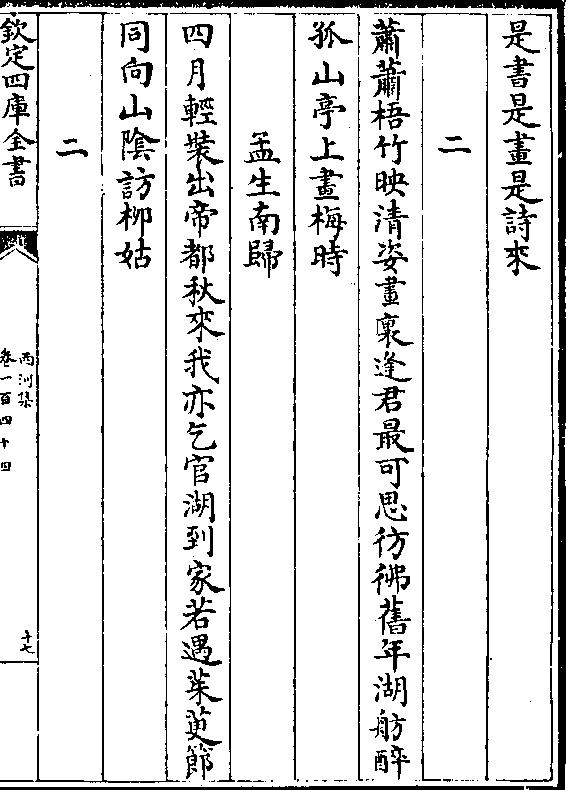 是書是畫是詩來
二
蕭蕭梧竹映清姿畫裏逢君最可思彷彿舊年湖舫醉
孤山亭上畫梅時
孟生南歸
四月輕裝出帝都秋來我亦乞官湖到家若遇茱萸節
同向山陰訪柳姑
二
欽定四庫全書
西河集
卷一百四十四
十七